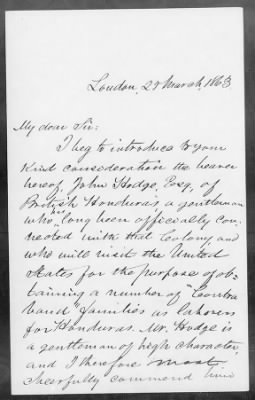 London, 27 March, 1863
My dear Sir:
I beg to introduce to your
kind consideration the bearer
hereof, John Hodge, Esq, of
British Honduras a gentleman
who has long been officially con-
nected with that Colony and
who will visit the United
States for the purpose of ob-
taining a number of "Contra
band" families as laborers
for Honduras. Mr. Hodge is
a gentleman of high character
and I therefore most
cheerfully commend him